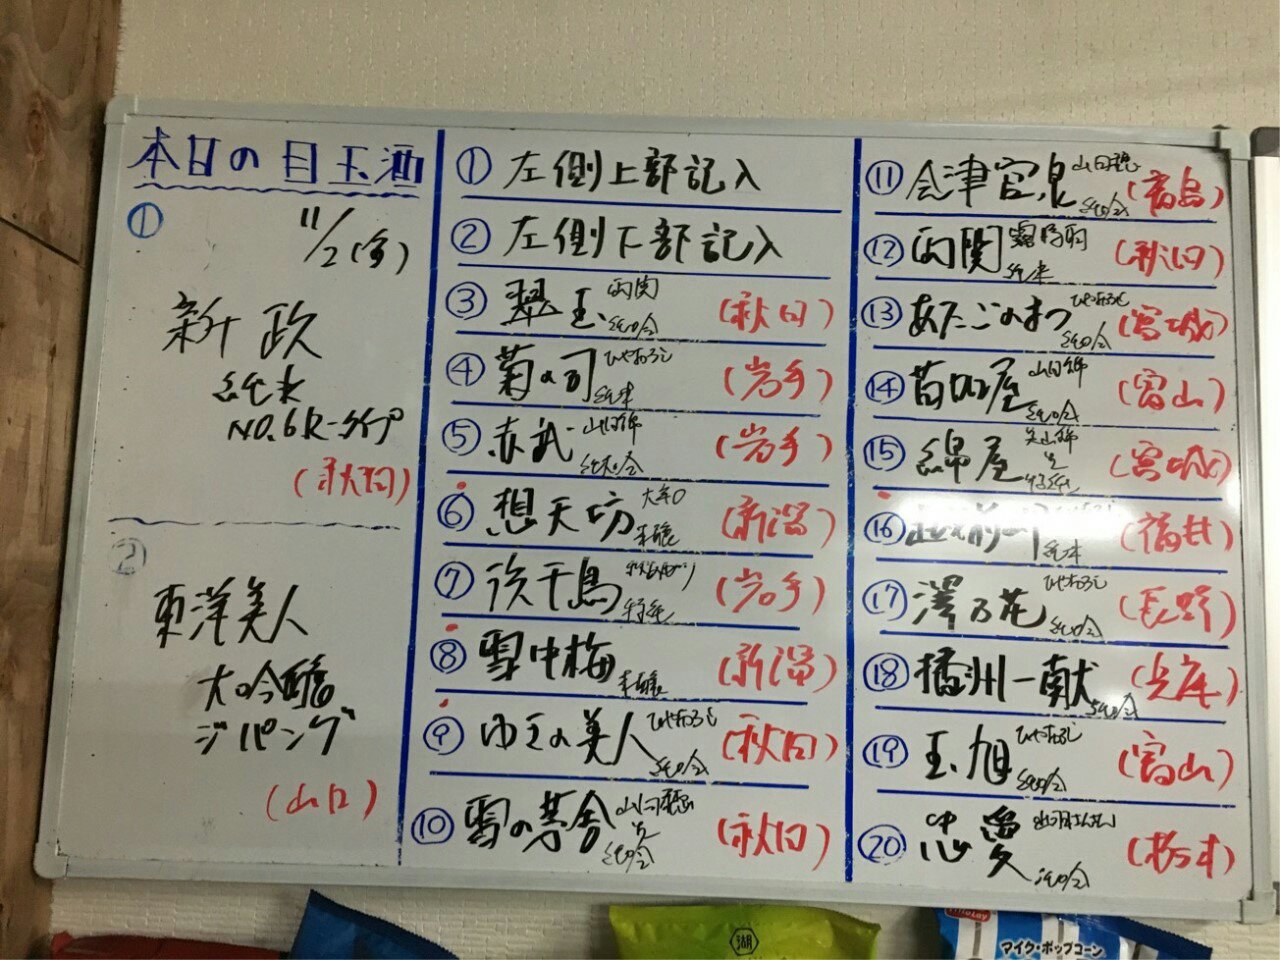 本日の目玉酒
①
11/2(金)
新政
純米
NO.6 R-タイプ
(秋田)
②
東洋美人
大吟醸
ジパング
(山口)
① 左側上部記入
② 左側下部記入
③ 翠玉 両関 純吟 (秋田)
④ 菊の司 ひやおろし 純米 (岩手)
⑤ 赤武 山田錦 純吟 (岩手)
⑥ 想天坊 大辛口 本醸 (新潟)
⑦ 浜千鳥 特純 (岩手)
⑧ 雪中梅 本醸 (新潟)
⑨ ゆきの美人 ひやおろし 純吟 (秋田)
⑩ 雪の茅舎 山田穂 純吟 (秋田)
⑪ 会津宮泉 山田穂 純吟 (福島)
⑫ 両関 純米 (秋田)
⑬ あたごのまつ ひやおろし 純吟 (宮城)
⑭ 苗加屋 山田錦 純吟 (富山)
⑮ 綿屋 美山錦 特純 (宮城)
⑯ 越前岬 純米 (福井)
⑰ 澤乃花 ひやおろし 純吟 (長野)
⑱ 播州一献 純吟 (兵庫)
⑲ 玉旭 ひやおろし 純吟 (富山)
⑳ 忠愛 純吟 (栃木)
湖
マイク・ポップコーン